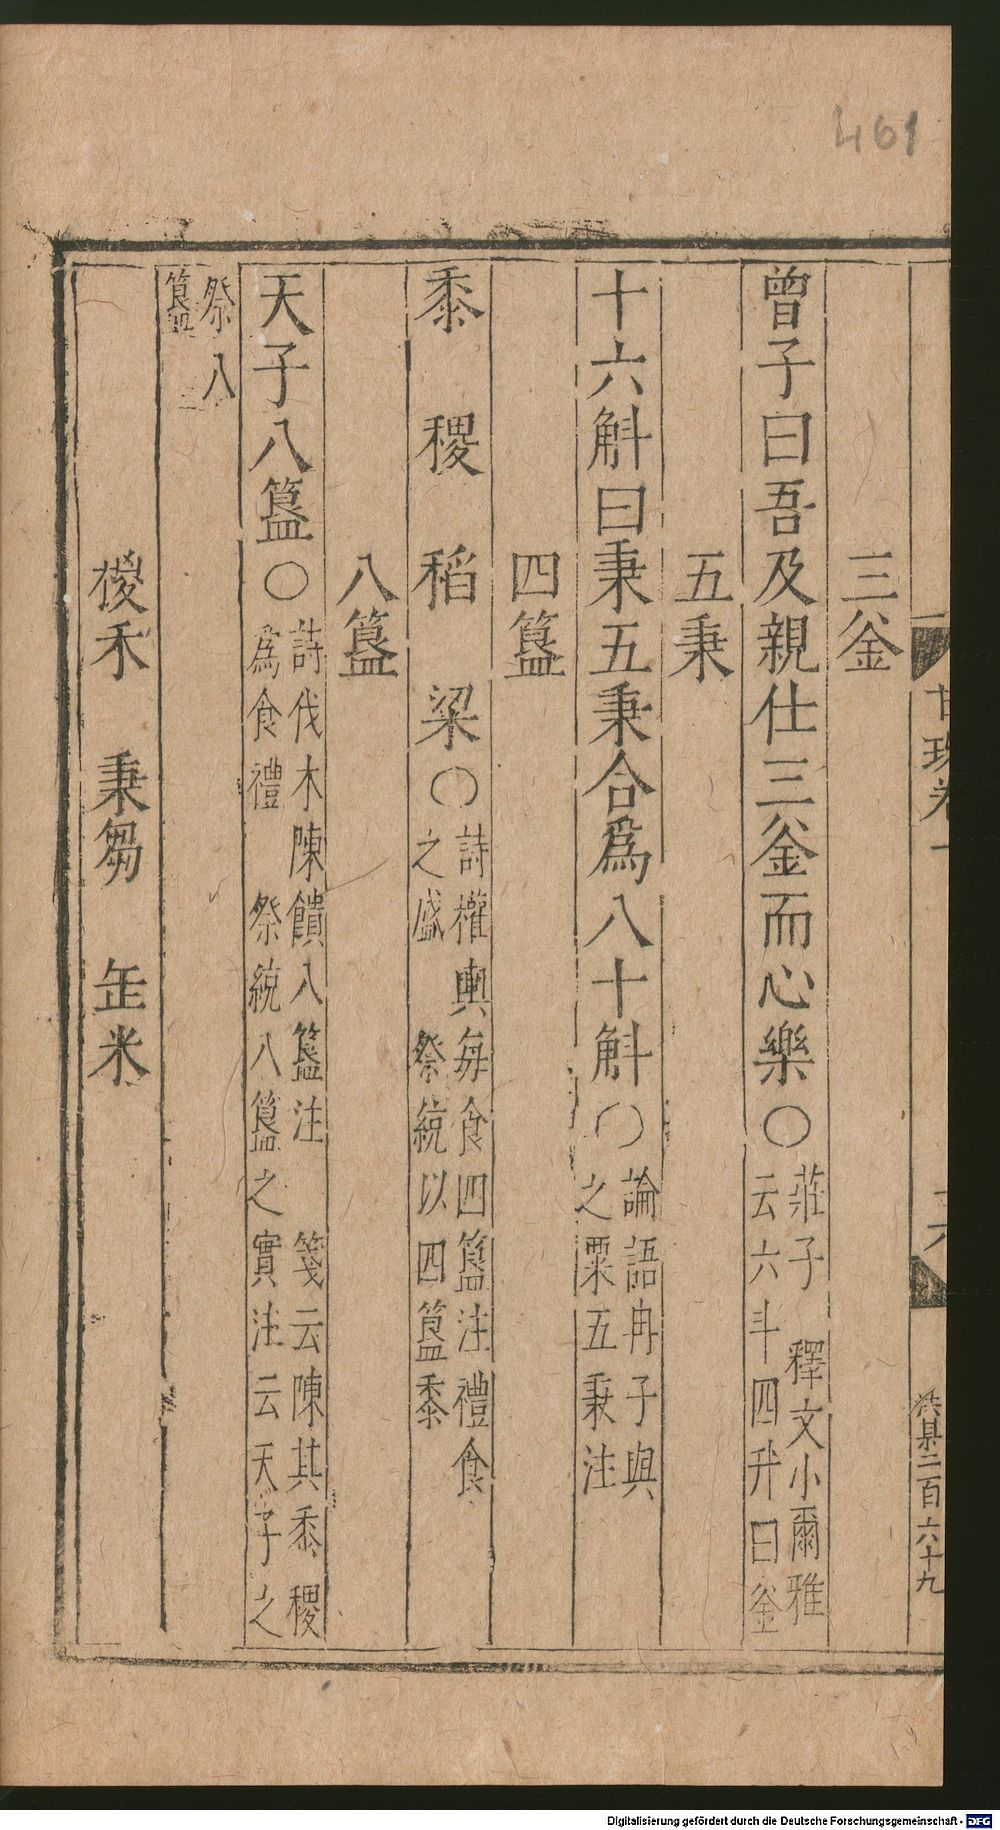 461
三釡
曾子曰吾及親仕三釡而心樂〇莊子　釋文小爾雅
云六斗四升曰釡
五秉
十六斛曰秉五秉合爲八十斛〇論語冉子與
之粟五秉注
四簋
黍　稷　稻　粱〇詩權輿每食四簋注禮食
之盛　祭統以四簋黍
八簋
天子八簋〇詩伐木陳饋八簋注　箋云陳其黍稷
爲食禮　祭統八簋之實注云天子之
祭八
簋
稯禾　秉芻　缶米
卷一
六
二百六十九
Digitalisierung gefördert durch die Deutsche Forschungsgemeinschaft - DFG